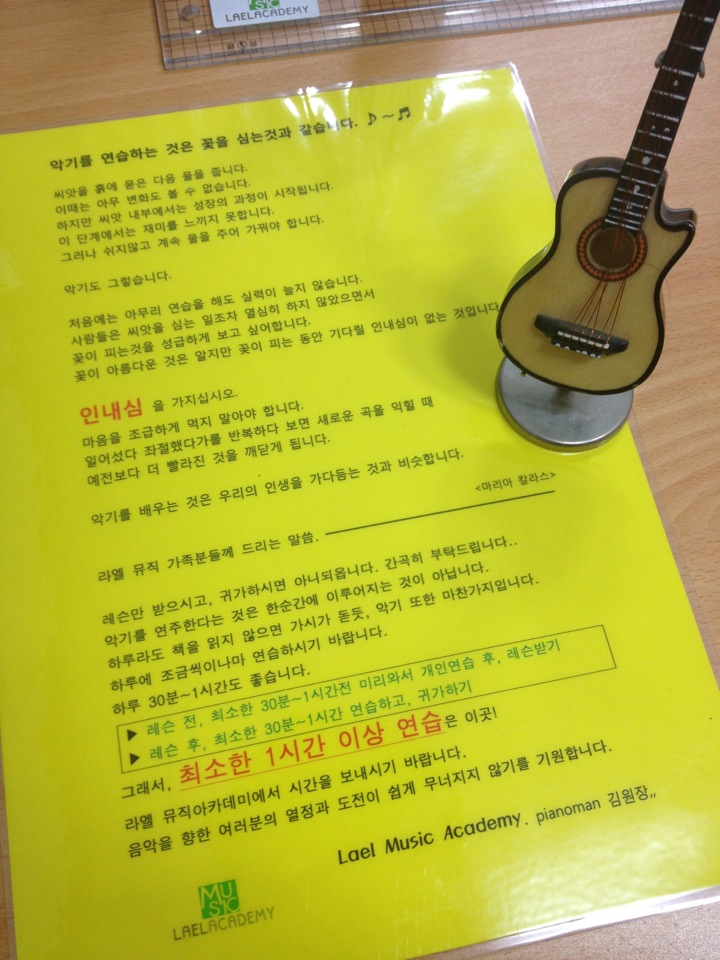 MUSIC
LAELACADEMY
악기를 연습하는 것은 꽃을 심는것과 같습니다. ♪～♬
씨앗을 흙에 묻은 다음 물을 줍니다.
이때는 아무 변화도 볼 수 없습니다.
하지만 씨앗 내부에서는 성장의 과정이 시작됩니다.
이 단계에서는 재미를 느끼지 못합니다.
그러나 쉬지않고 계속 물을 주어 가꿔야 합니다.
악기도 그렇습니다.
처음에는 아무리 연습을 해도 실력이 늘지 않습니다.
사람들은 씨앗을 심는 일조차 열심히 하지 않았으면서
꽃이 피는것을 성급하게 보고 싶어합니다.
꽃이 아름다운 것은 알지만 꽃이 피는 동안 기다릴 인내심이 없는 것입니다.
인내심 을 가지십시오.
마음을 조급하게 먹지 말아야 합니다.
일어섰다 좌절했다가를 반복하다 보면 새로운 곡을 익힐 때
예전보다 더 빨라진 것을 깨닫게 됩니다.
악기를 배우는 것은 우리의 인생을 가다듬는 것과 비슷합니다.
<마리아 칼라스>
라엘 뮤직 가족분들께 드리는 말씀.
레슨만 받으시고, 귀가하시면 아니되옵니다. 간곡히 부탁드립니다..
악기를 연주한다는 것은 한순간에 이루어지는 것이 아닙니다.
하루라도 책을 읽지 않으면 가시가 돋듯, 악기 또한 마찬가지입니다.
하루에 조금씩이나마 연습하시기 바랍니다.
하루 30분~1시간도 좋습니다.
▶ 레슨 전, 최소한 30분~1시간전 미리와서 개인연습 후, 레슨받기
▶ 레슨 후, 최소한 30분~1시간 연습하고, 귀가하기
그래서, 최소한 1시간 이상 연습은 이곳!
라엘 뮤직아카데미에서 시간을 보내시기 바랍니다.
음악을 향한 여러분의 열정과 도전이 쉽게 무너지지 않기를 기원합니다.
Lael Music Academy. pianoman 김원장,,
MUSIC
LAELACADEMY